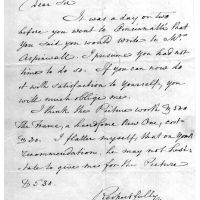 Dear Sir
It was a day or two
before you went to
that
you said you would write to Mr
Aspinwall. I presume you had not
time to do so. If you can now do
it with satisfaction to yourself, you
will much oblige me.
I think the Picture worth $500
The Frame, a handsome New One, cost
$30. I flatter myself, that on your
recommendation, he may not hesi-
tate to give me for the Picture
$530.
Respectfully